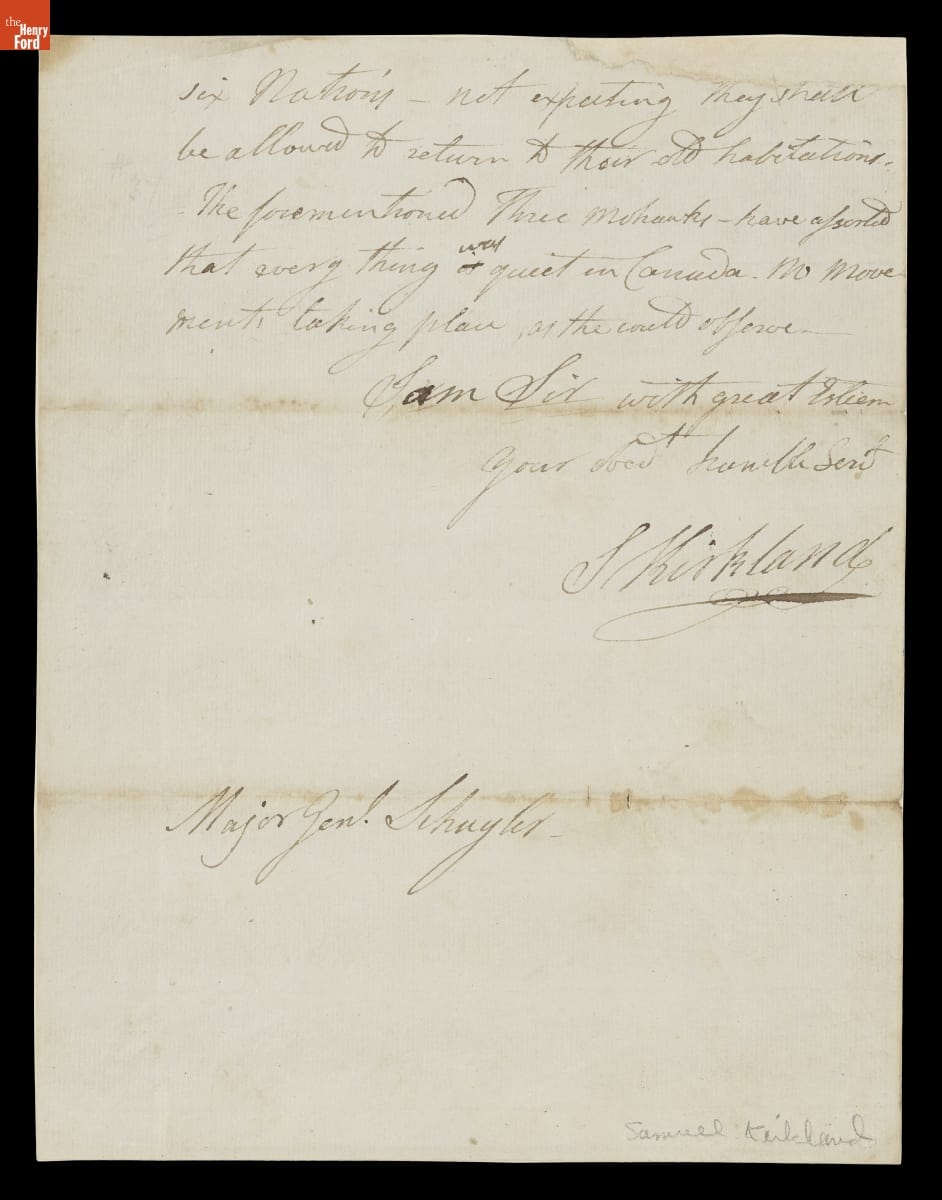 the
Henry
Ford
six Nations – not expecting they shall
be allowed to return to their old habitations.
– The forementioned Three Mohawks – have asserted
that every thing is was quiet in Canada. No Move
ments taking place, as the could observe –
I am Sir with great Esteem
your obedt humble Servt
S Kirkland
Major Genl. Schuyler –
Samuel Kirkland